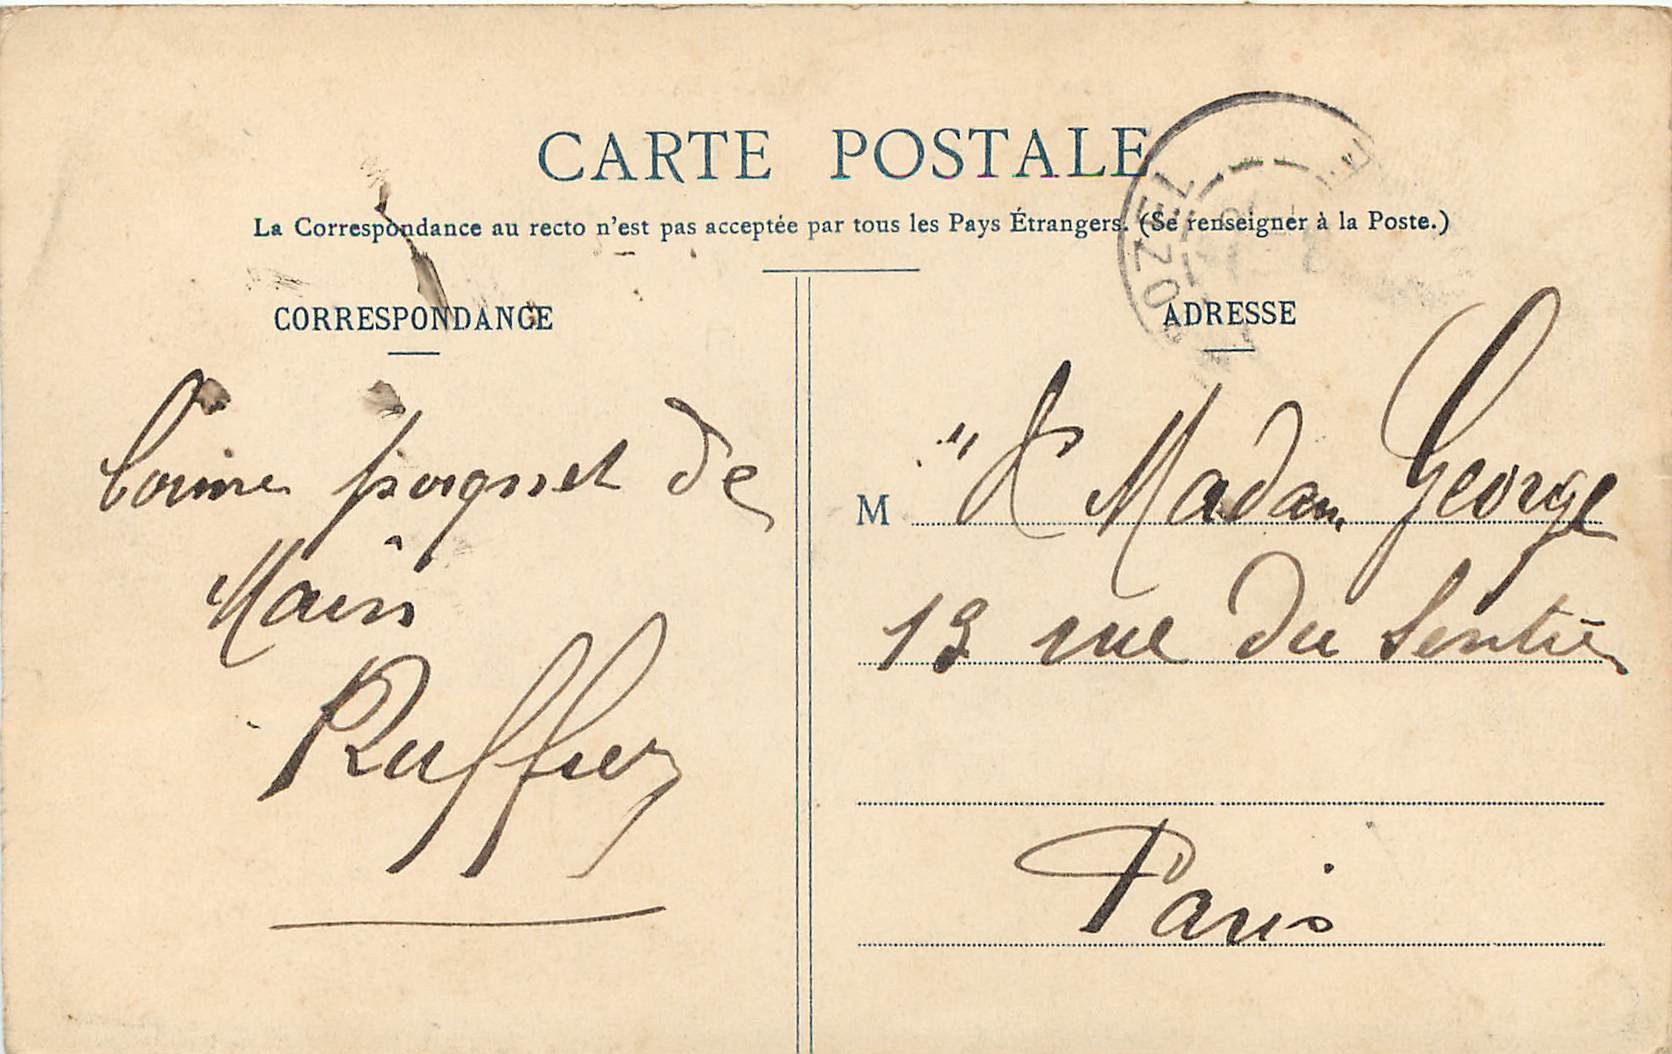 CARTE POSTALE
La Correspondance au recto n'est pas acceptée par tous les Pays Étrangers. (Se renseigner à la Poste.)
CORRESPONDANCE
bonne poignet de
Main
Ruffier
OZEL
ADRESSE
M & Madam George
13 rue du Sentier
Paris